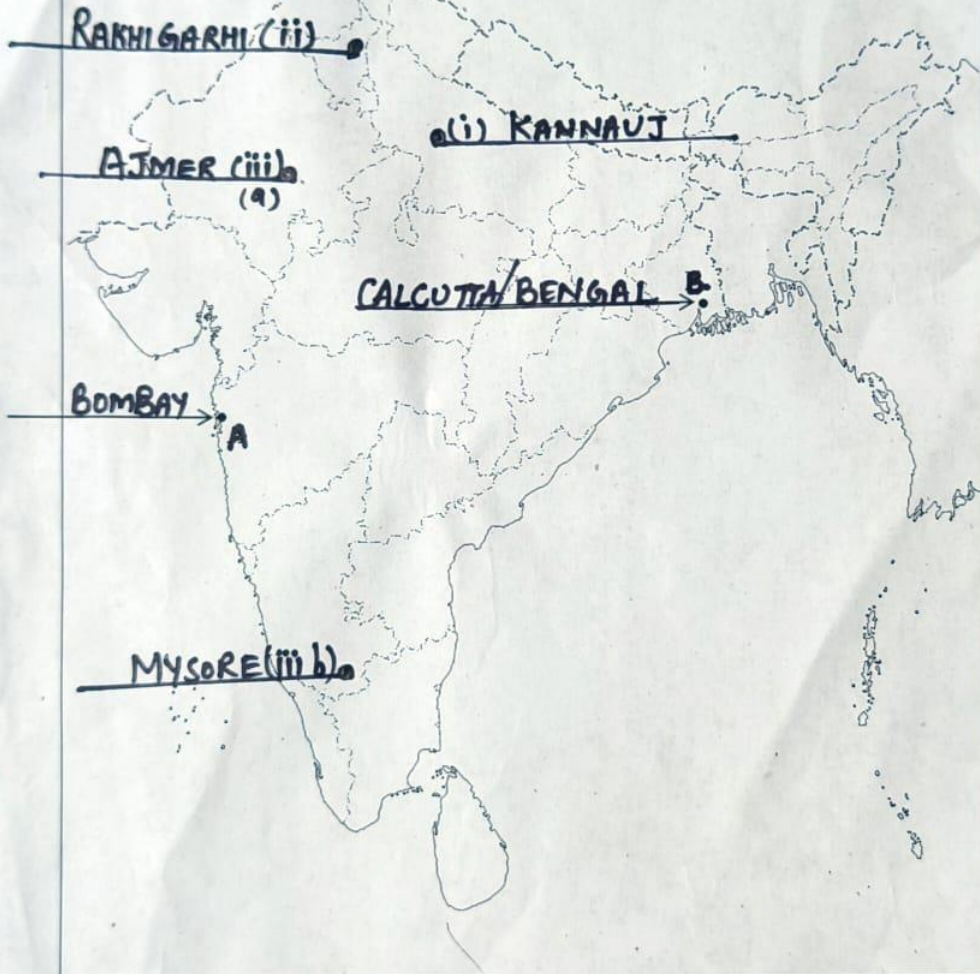 RAKHIGARHI (ii)
(i) KANNAUJ
AJMER (iii)
(a)
CALCUTTA/BENGAL
B.
BOMBAY
A
MYSORE (iii b)